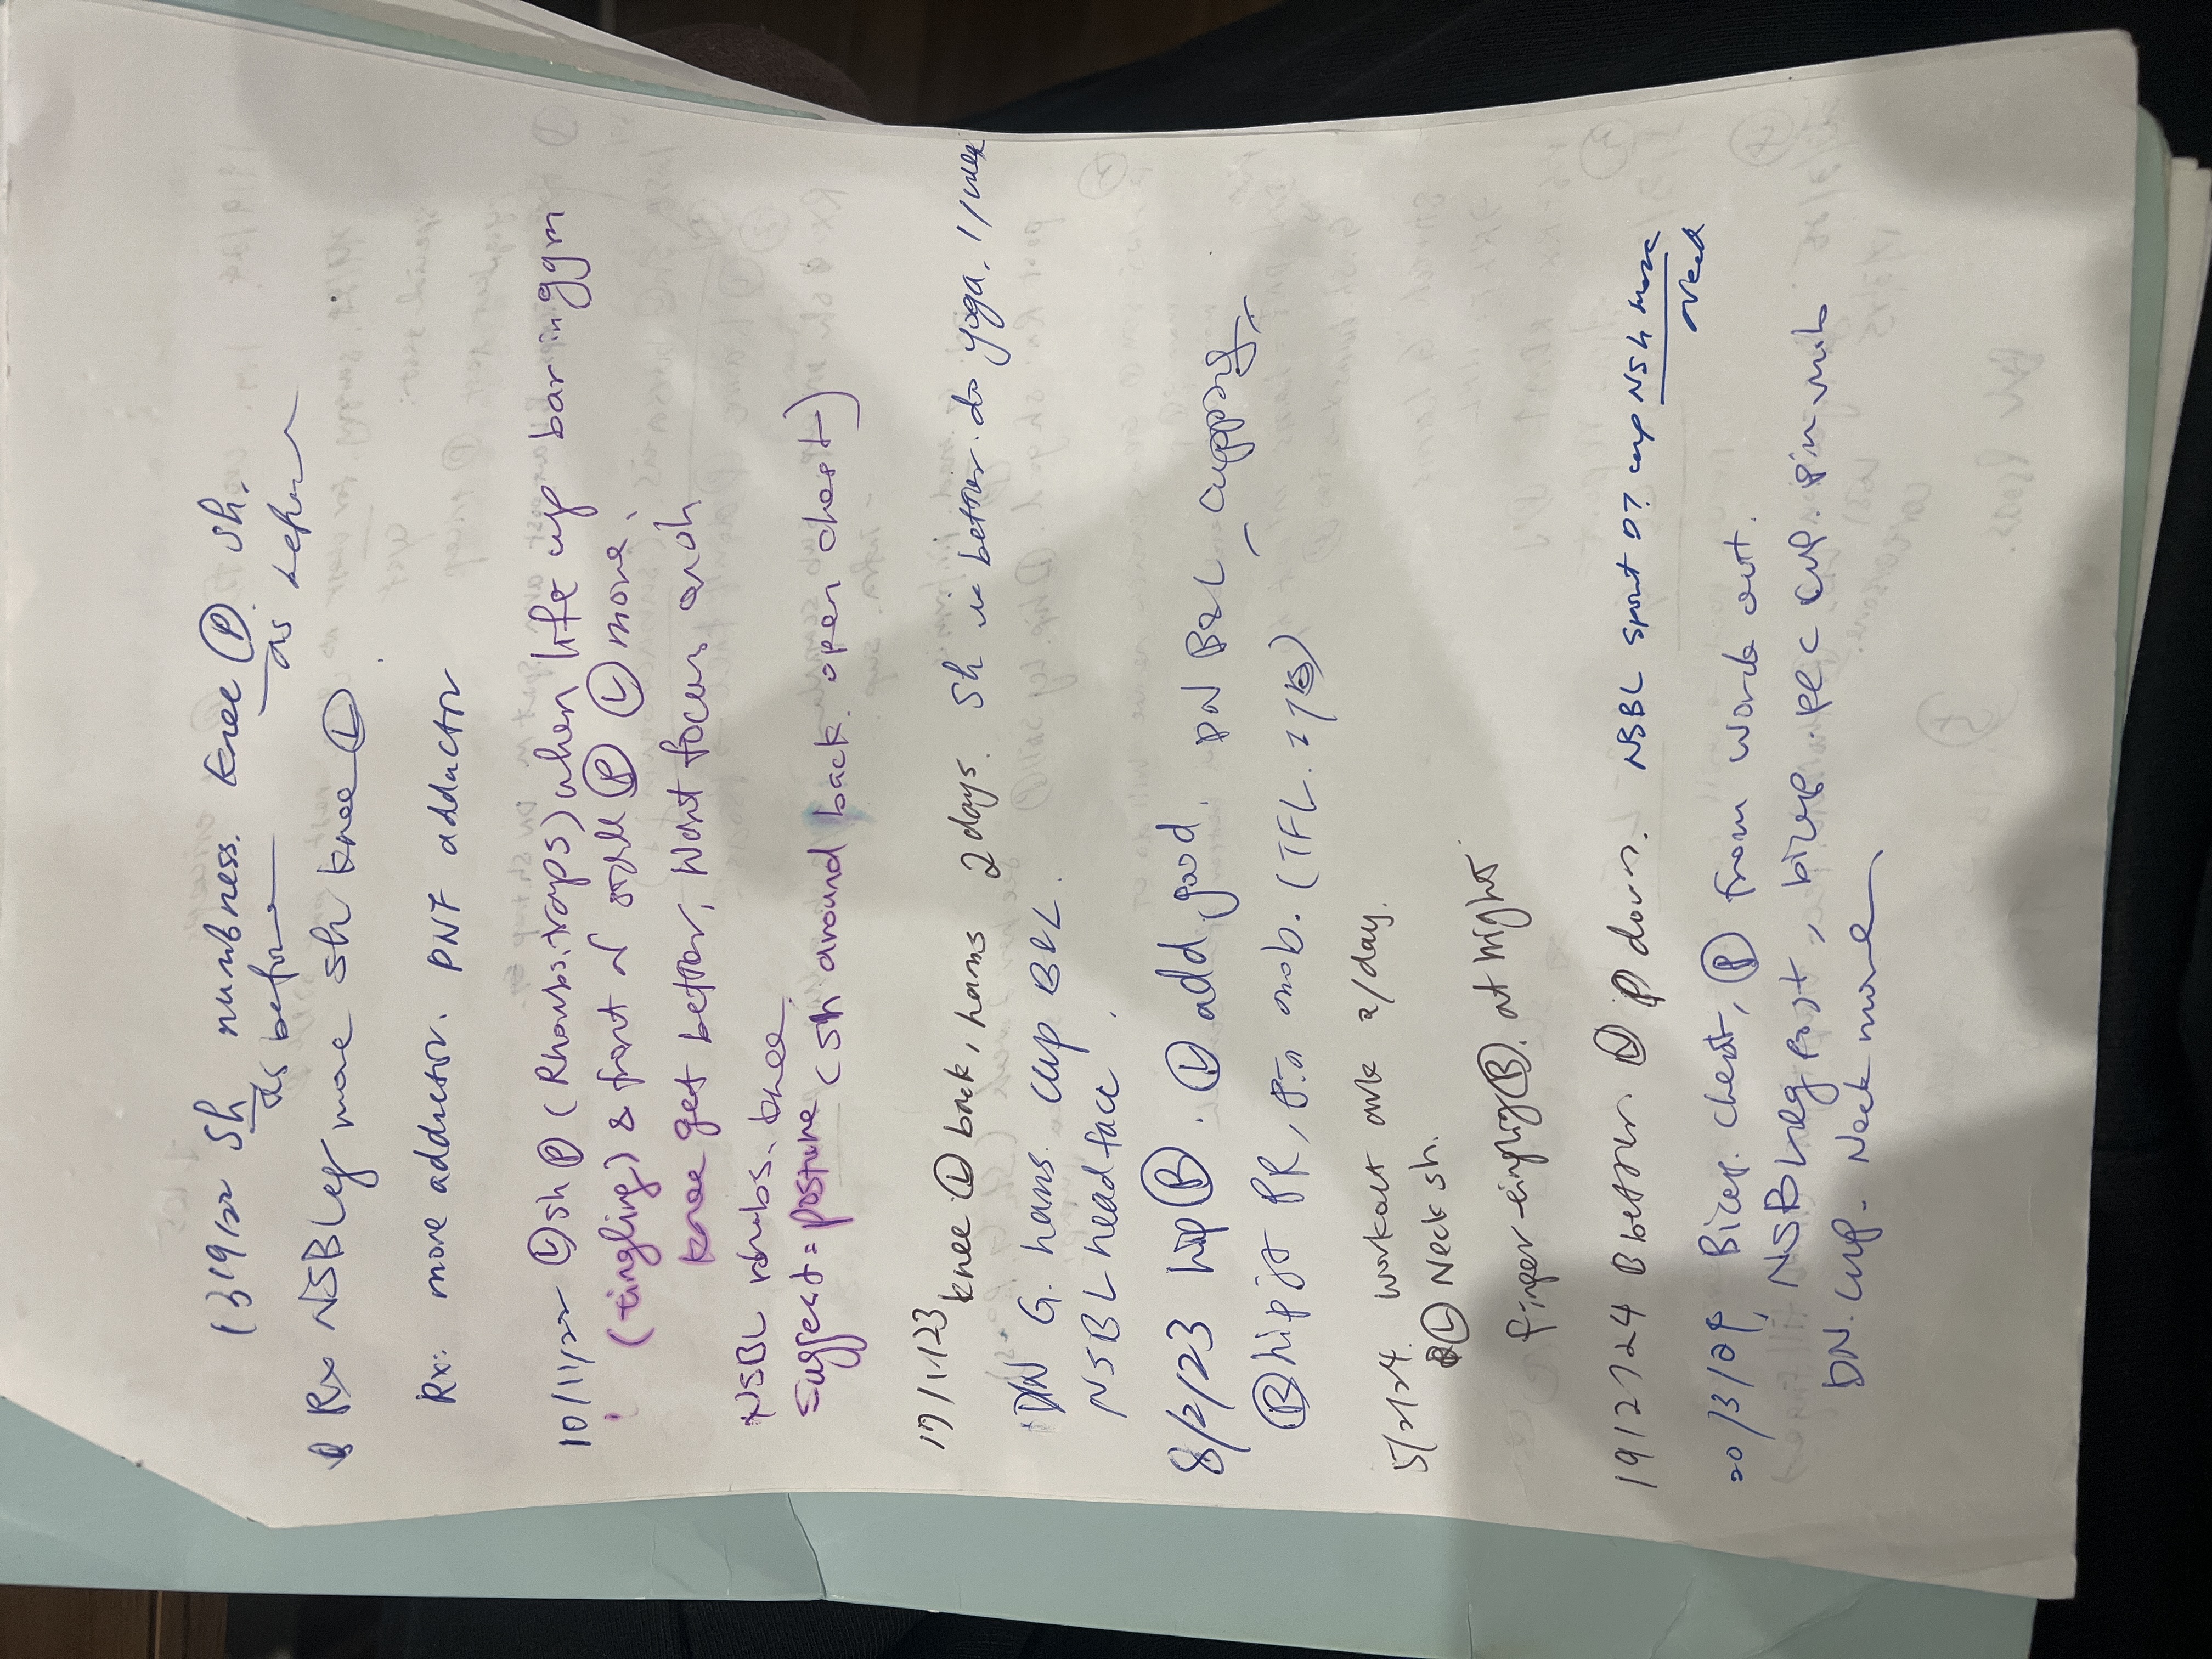 13/9/22 Sh numbness. knee Ⓟ. sh.
as before as before
Rx NSBLeg more sh knee Ⓛ
Rx: more adductor. PNF adductor
10/11/22 Ⓛ sh Ⓟ (Rhombs. traps) when life up bar in gym
(tingling) & front Ⓟ Ⓛ more.
knee get better, Want focus on sh
NSBL rhombs. knee
Suggest = posture (sh around back. open chest)
17/1/23 knee Ⓛ back, hams 2 days. sh is better. do yoga. 1/week
DN G. hams. cup B&L.
NSBL head face.
8/2/23 hip Ⓑ. Ⓛ add good. DN B&L - cupping
Ⓡ hip jt PR, mob. (TFL.
5/2/24. workout 2/day.
Ⓛ Neck sh.
finger tingling Ⓑ. at night.
19/2/24 B better Ⓛ P down. NSBL cup NSh more
need
20/3/24, Bicep. chest, Ⓟ from work out.
NSBL neg post, bicep pec cup.
DN. cup. Neck more